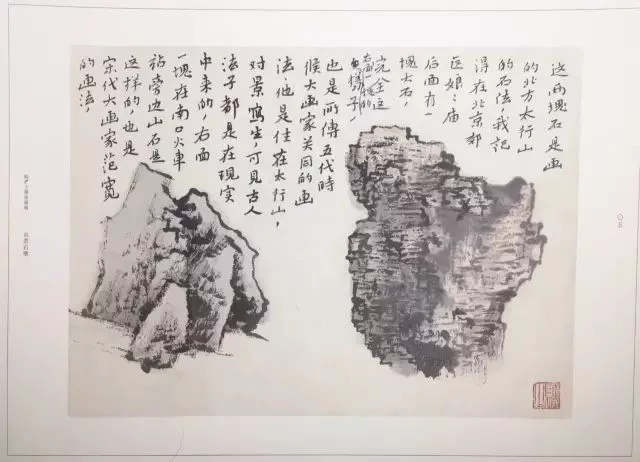 这两块石是画
的北方太行山
的石法,我记
得在北京郊
区娘〻庙
后面有一
块大石,
完全这
样子,
也是所傳五代時
候大画家关同的画
法,他是住在太行山,
对景寫生,可见古人
法子都是在现实
中来的,右面
一塊在南口火車
站旁边山石是
这样的,也是
宋代大画家范寬
的画法,
〇五